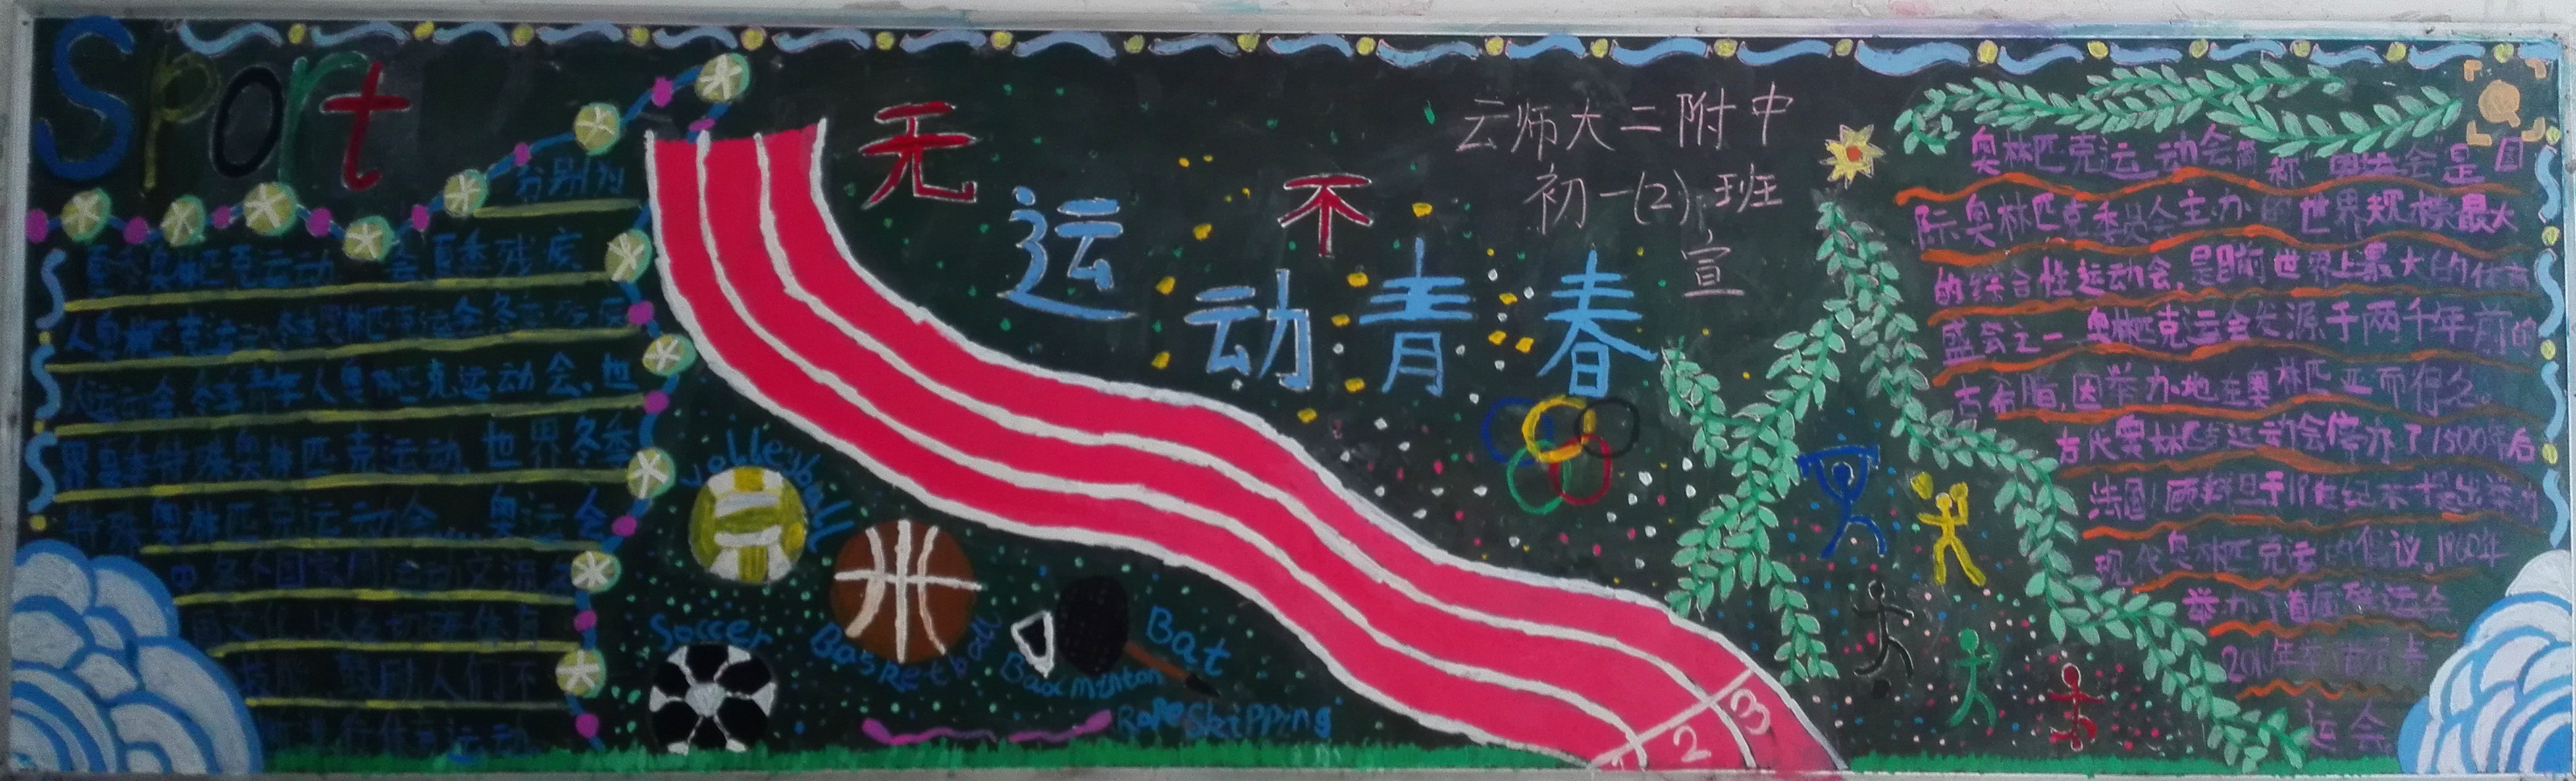 Sport
分别为
夏季奥林匹克运动会夏季残疾
人奥林匹克运动冬季奥林匹克运会冬季残疾
人运动会.冬季青年人奥林匹克运动会.世
界夏季特殊奥林匹克运动.世界冬季
特殊奥林匹克运动会……奥运会
中各个国家用运动交流各
国文化.以及切磋体育
技能.鼓励人们不
断进行体育运动.
无运动
不青春
云师大二附中
初一(2)班
宣
Volleyball
Soccer
Basketball
Badminton
Bat
Rope Skipping
2
3
奥林匹克运动会简称“奥运会”是国
际奥林匹克委员会主办的世界规模最大
的综合性运动会.是目前世界上最大的体育
盛会之一.奥林匹克运会发源于两千年前的
古希腊,因举办地在奥林匹亚而得名。
古代奥林匹克运动会停办了1500年后
法国顾拜旦于19世纪末提出举办
现代奥林匹克运的倡议。1960年
举办了首届残运会
2010年举
运会